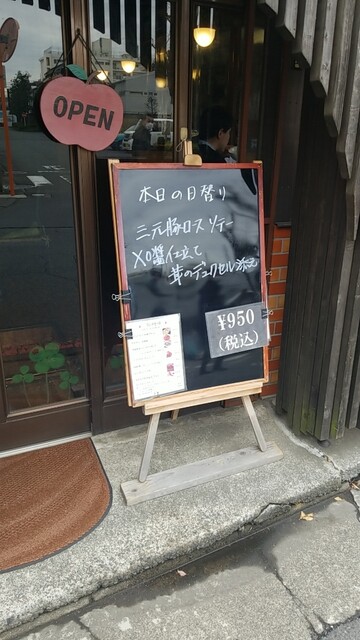 OPEN
本日の日替り
三元豚ロースソテー
XO醤仕立て
茸のデュクセル添え
¥950
(税込)